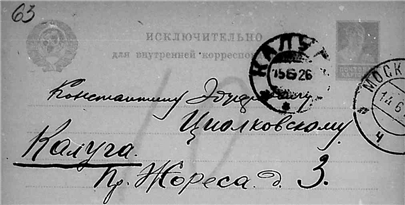 63
ИСКЛЮЧИТЕЛЬНО
для внутренней корреспон
КАЛУГ
15 6 26
МОСК
14 6
Ч
Константину Эдуардовичу
Циолковскому
Калуга.
Пр. Жореса д. 3.